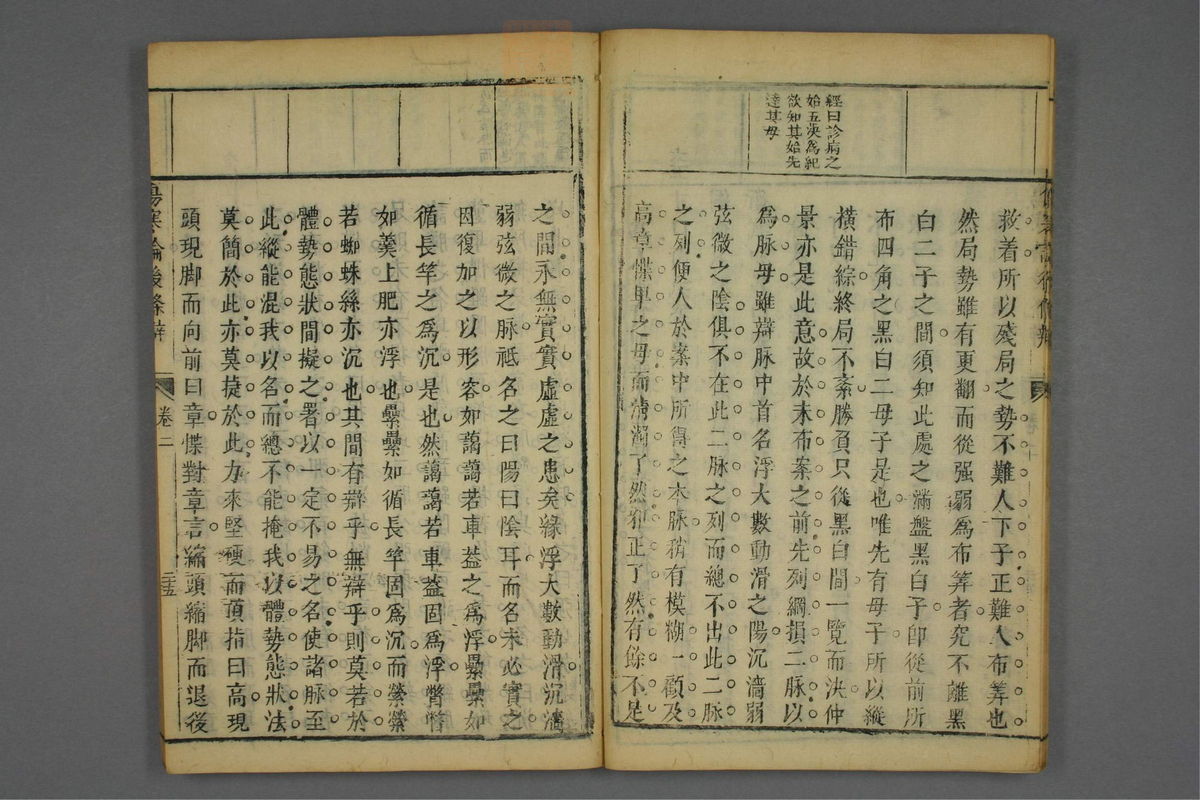 經曰診病之
始五決爲紀
欲知其始先
達其母
救着所以殘局之勢不難人下子正難人布筭也
然局勢雖有更翻而從强弱爲布筭者究不離黑
白二子之間須知此處之滿盤黑白子卽從前所
布四角之黑白二母子是也唯先有母子所以縱
橫錯綜終局不紊勝負只從黑白間一覽而決仲
景亦是此意故於未布案之前先列綱損二脉以
爲脉母雖辯脉中首名浮大數動滑之陽沉濇弱
弦微之陰俱不在此二脉之列而總不出此二脉
之列便人於案中所得之本脉稍有模糊一顧及
高章惵卑之母而清濁了然邪正了然有餘不足
之間永無實實虛虛之患矣緣浮大數動滑沉濇
弱弦微之脉祗名之曰陽曰陰耳而名未必實之
因復加之以形容如藹藹若車葢之爲浮纍纍如
循長竿之爲沉是也然藹藹若車葢固爲浮瞥瞥
如羹上肥亦浮也纍纍如循長竿固爲沉而縈縈
若蜘蛛絲亦沉也其間有辯乎無辯乎則莫若於
體勢態狀間擬之署以一定不易之名使諸脉至
此縱能混我以名而總不能掩我以體勢態狀法
莫簡於此亦莫㨗於此方來堅硬而頂指曰高現
頭現脚而向前曰章惵對章言縮頭縮脚而退後
傷寒論後條辯
卷二